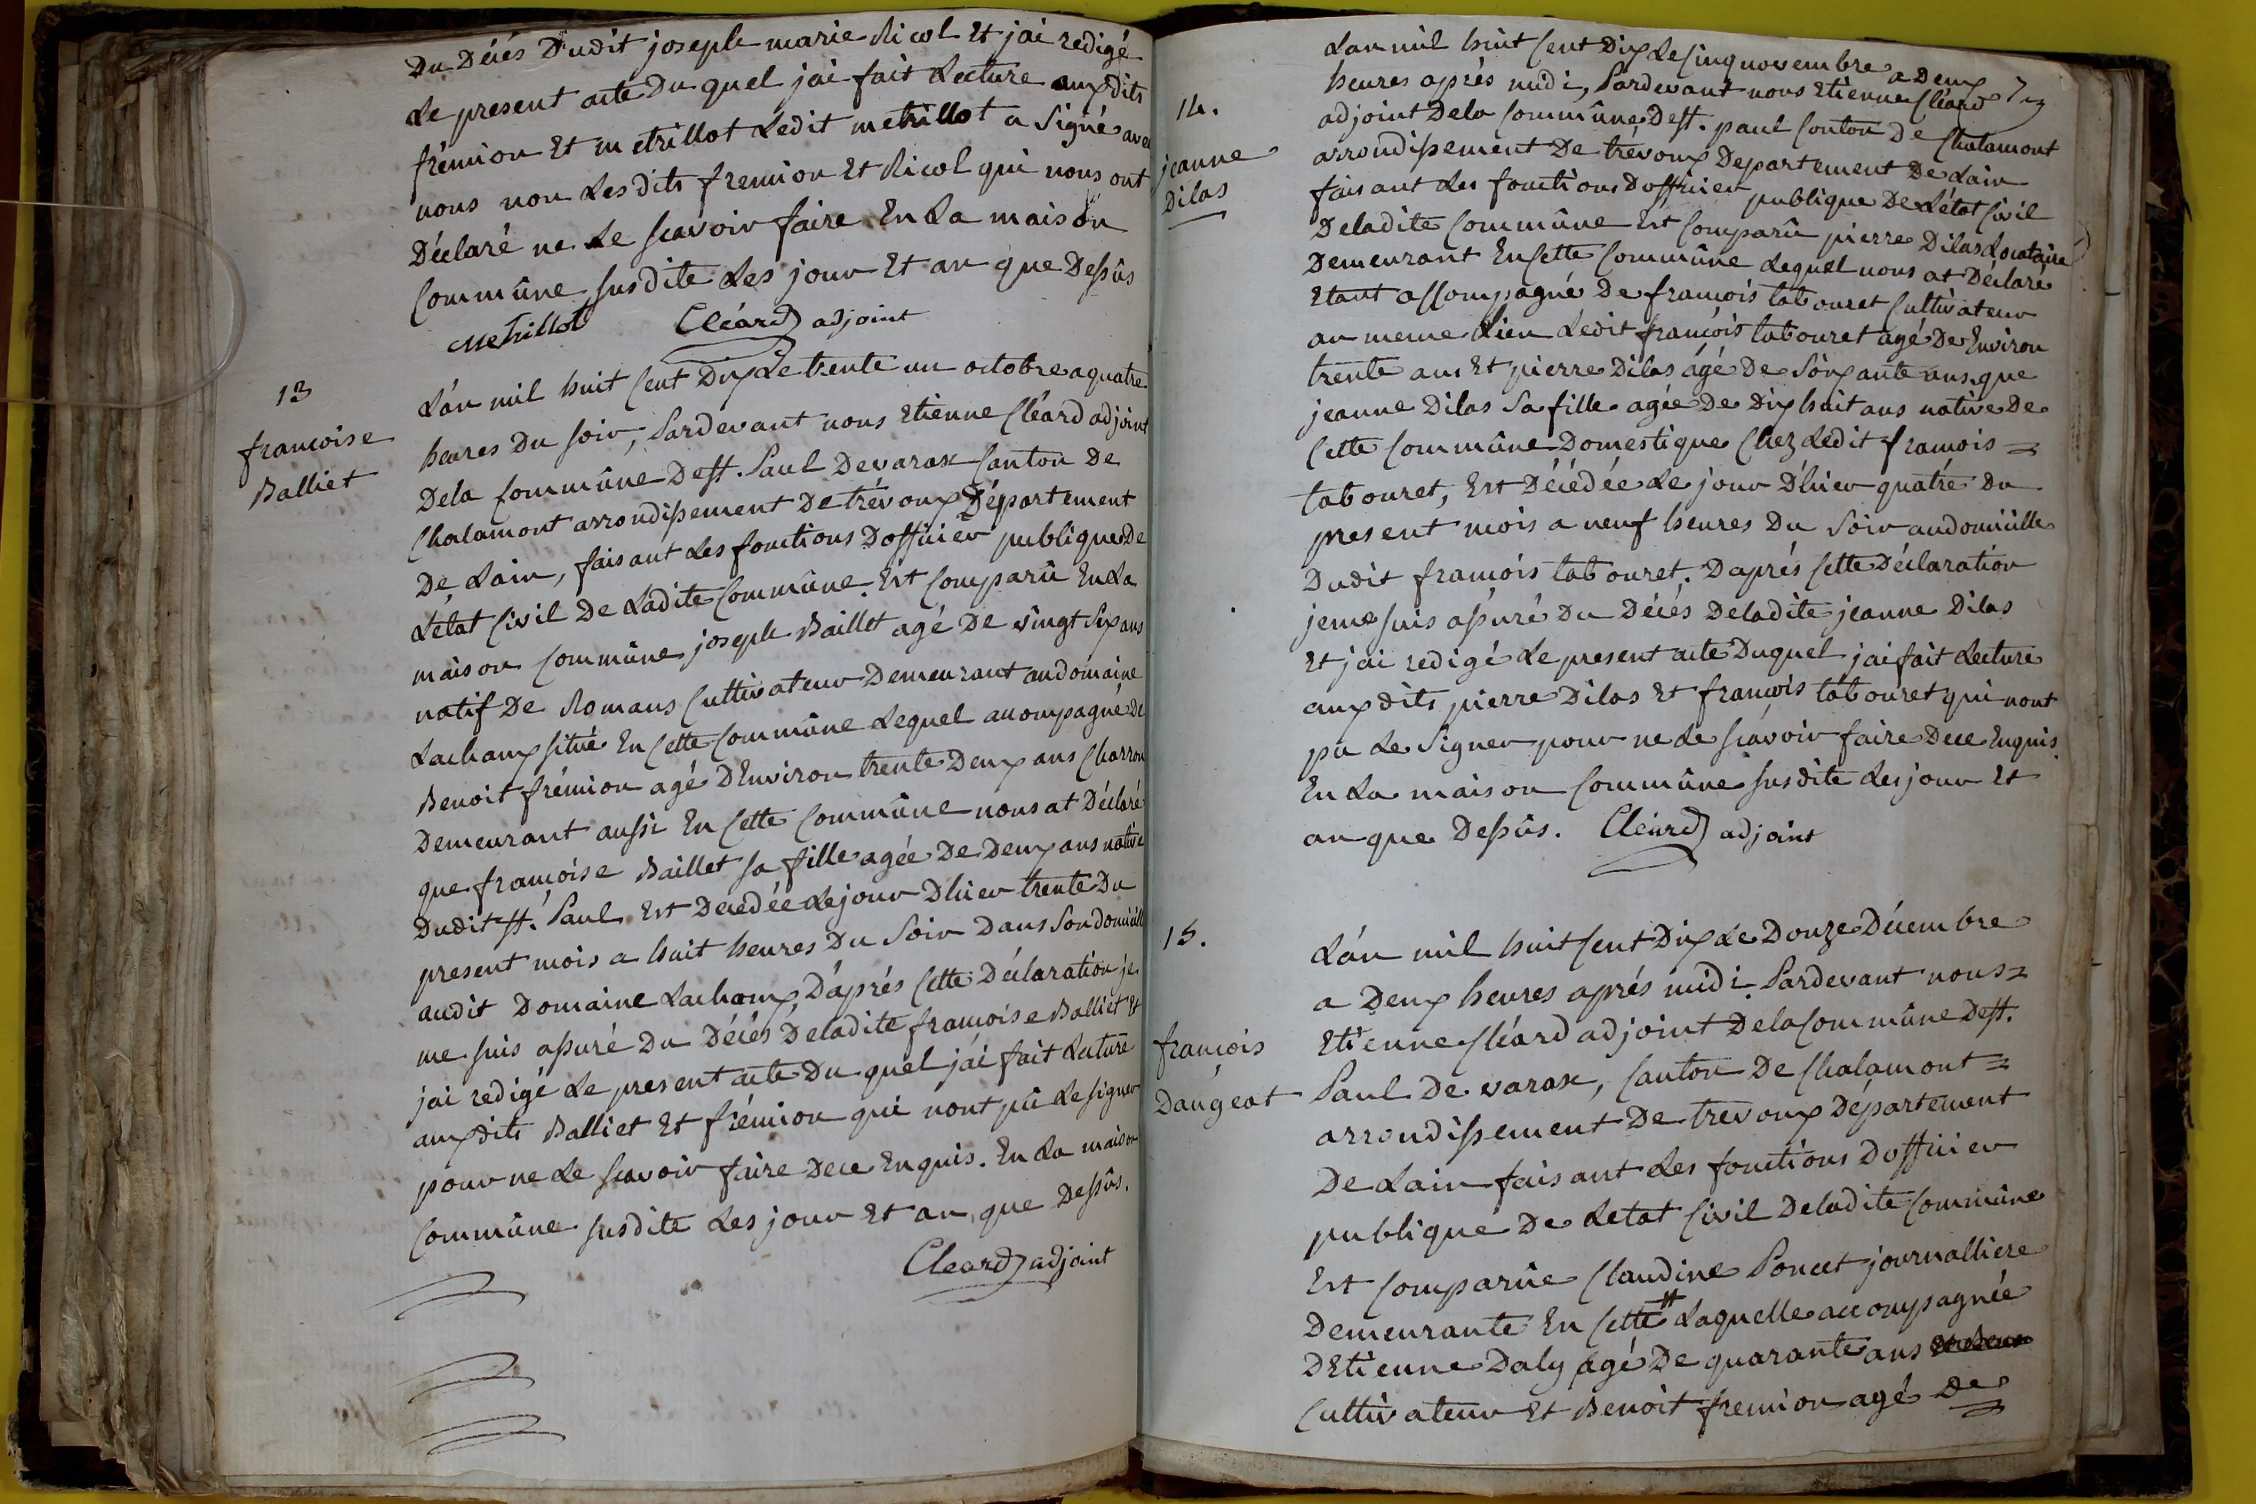 Du Décés Dudit joseph marie Ricol Et jai redigé
Le present acte Du quel jai fait Lecture auxdits
frémion Et metrillot Ledit metrillot a Signé avec
nous non Lesdits fremion Et Ricol qui nous ont
Déclaré ne Le scavoir faire En La maison
Commûne susdite Les jour Et an que Dessûs
Metrillot Cléard adjoint
13
francoise
Balliet
L'an mil huit Cent Dix Le trente un octobre a quatre
heures Du soir, Pardevant nous Etienne Cléard adjoint
Dela Commûne De st. Paul Devarax Canton De
Chalamont arrondissement De trévoux Département
De Lain, faisant Les fonctions D'officier publique De
L'état Civil De Ladite Commûne. Est Comparû En La
maison Commûne joseph Baillet agé De vingt six ans
natif De Romans Cultivateur Demeurant au domaine
Lachamp situé En Cette Commûne Lequel accompagné De
Benoit frémion agé D'Environ trente Deux ans Charron
Demeurant aussi En Cette Commûne nous at Déclaré
que francoise Baillet sa fille agée De Deux ans native
Dudit st. Paul Est Decedée Le jour D'hier trente Du
present mois a huit heures Du Soir Dans Son domicille
audit Domaine Lachamp, D'aprés Cette Déclaration je
me suis assuré Du Décés Deladite francoise Balliet Et
jai redigé Le present acte Du quel j'ai fait Lecture
auxdits Balliet Et frémion qui nont pû Le signer
pour ne Le scavoir faire Dece Enquis. En La maison
Commûne susdite Les jour Et an que Dessûs.
Cleard adjoint
7
14.
jeanne
Dilas
Lan mil huit Cent Dix Le Cinq novembre a Deux
heures aprés midi, Pardevant nous Etienne Cléard
adjoint Dela Commûne De st. paul Canton De Chalamont
arrondissement De trévoux Departement De Lain
faisant Les fonctions D'officier publique De L'état Civil
Deladite Commûne Est Comparû pierre Dilas Locataire
Demeurant En Cette Commûne Lequel nous at Déclaré
Etant accompagné De francois tabouret Cultivateur
au meme Lieu Ledit francois tabouret agé De Environ
trente ans Et pierre Dilas agé De Soixante ans que
jeanne Dilas Sa fille agée De Dix huit ans native De
Cette Commûne Domestique Chez Ledit francois =
tabouret, Est Décédée Le jour D'hier quatre Du
present mois a neuf heures Du Soir au domicille
Dudit francois tabouret. Daprés Cette Déclaration
jeme suis assuré Du Décés Deladite jeanne Dilas
Et jai redigé Le present acte Duquel jai fait Lecture
auxdits pierre Dilas Et francois tabouret qui nont
pu Le Signer pour ne Le scavoir faire Dece Enquis
En La maison Commûne susdite Les jour Et
an que Dessûs. Cléard adjoint
15.
francois
Daugeat
L'an mil huit Cent Dix Le Douze Décembre
a Deux heures aprés midi. Pardevant nous =
Etienne Cléard adjoint Dela Commûne De st.
Paul De varax, Canton De Chalamont =
arrondissement De trevoux Département
De Lain faisant Les fonctions D'officier
publique De Letat Civil Deladite Commûne
Est Comparûe Claudine Poncet journalliere
Demeurante En Cette # Laquelle accompagnée
D'Etienne Daly agé De quarante ans
Cultivateur Et Benoit fremion agé De